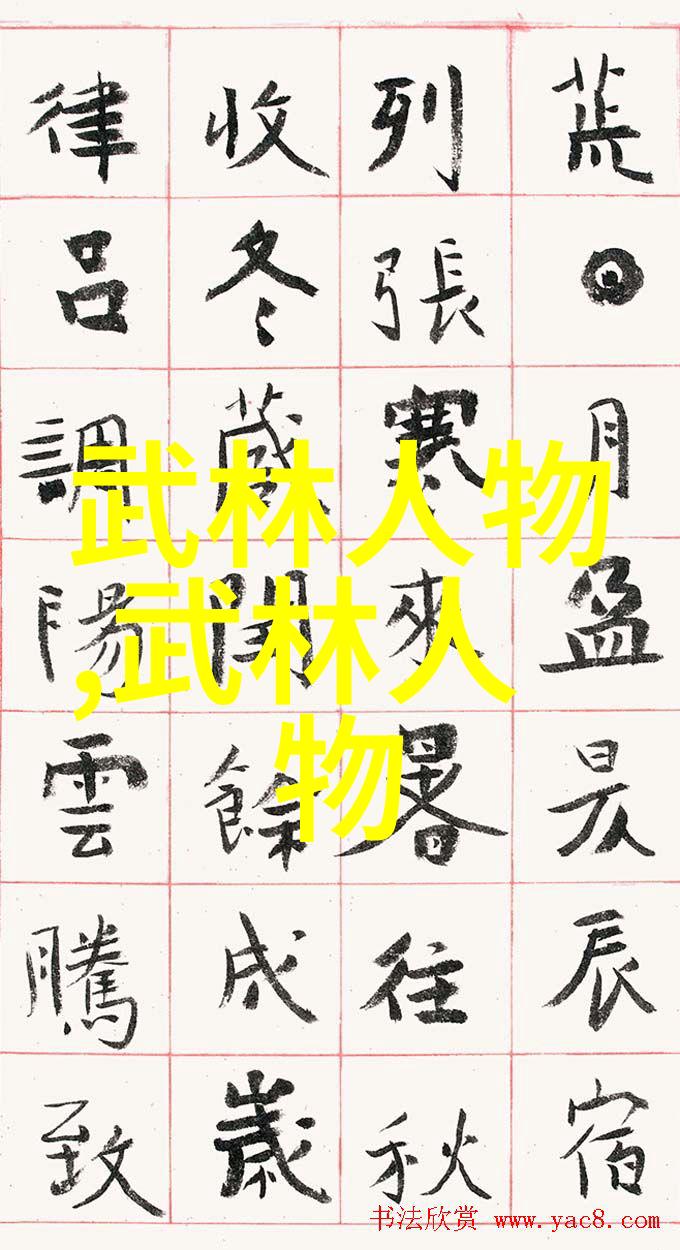 荒日月盈昃辰宿
列張寒來暑往秋
收冬藏閏餘成歲
律呂調陽雲騰致
武林人物
,武林人
物
书法欣赏 www.yac8.com